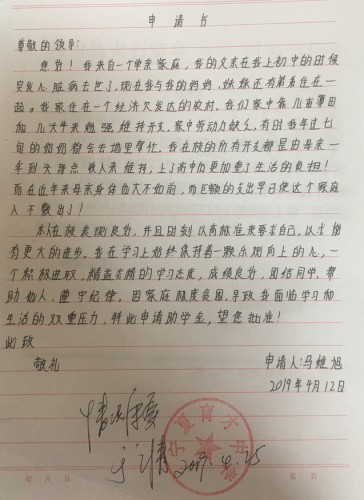 申请书
尊敬的领导:
您好!我来自一个单亲家庭,我的父亲在我上初中的时候
突发心脏病去世了,现在我与我的妈妈、妹妹还有爷爷住在一
起。我家住在一个经济欠发达的农村。我们家中靠几亩薄田
和几头牛来勉强维持开支,家中劳动力缺乏,有时我年过七
旬的奶奶都会去地里帮忙。我在校的所有开支都是由母亲一
年到头这点收入来维持,上了高中后更加重了生活的负担!
而在近年来母亲身体也大不如前,而巨额的支出早已使这个家庭
入不敷出了!
本人在校表现良好,并且时刻以高标准来要求自己,以求
有更大的进步。我在学习上始终保持着一颗乐观向上的心,一
个积极进取,精益求精的学习态度,成绩良好,团结同学,帮
助他人,遵守纪律,因家庭极度贫困,导致我面临学习和
生活的双重压力,特此申请助学金,望您批准!
此致
敬礼
申请人:马维旭
2019年4月12日
情况属实
2019.4.25
宁夏育才
年 月 日
第 页